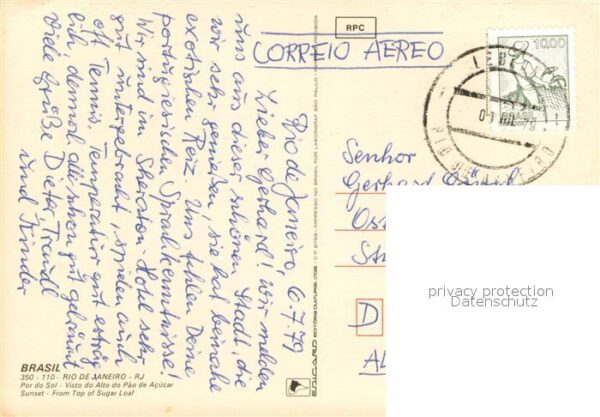 RPC
CORREIO AEREO
Rio de Janeiro, 6.7.79
Lieber Gerhard! Wir melden
uns aus dieser schönen Stadt, die
wir sehr genießen, sie hat beinahe
exotischen Reiz. Uns fehlen Deine
portugiesischen Sprachkenntnisse!
Wir sind im Sheraton-Hotel sehr
gut untergebracht, spielen auch
oft Tennis. Temperatur gut erträg-
lich, diesmal alle schon gut gebräunt
Viele Grüße Dieter, Traudl
und Kinder
BRASIL
350 - 110 - RIO DE JANEIRO - RJ
Por do Sol - Visto do Alto do Pão de Açúcar
Sunset - From Top of Sugar Loaf
EDICARD EDITORA CULTURAL LTDA.
10,00
RIO DE JANEIRO
Senhor
Gerhard
Ost
St
D
privacy protection
Datenschutz